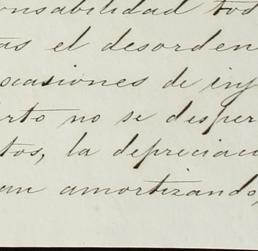 onsabilidad tos
as el desorden
ocasiones de inf
rto no se desper
tos, la depreciac
an amortizando,